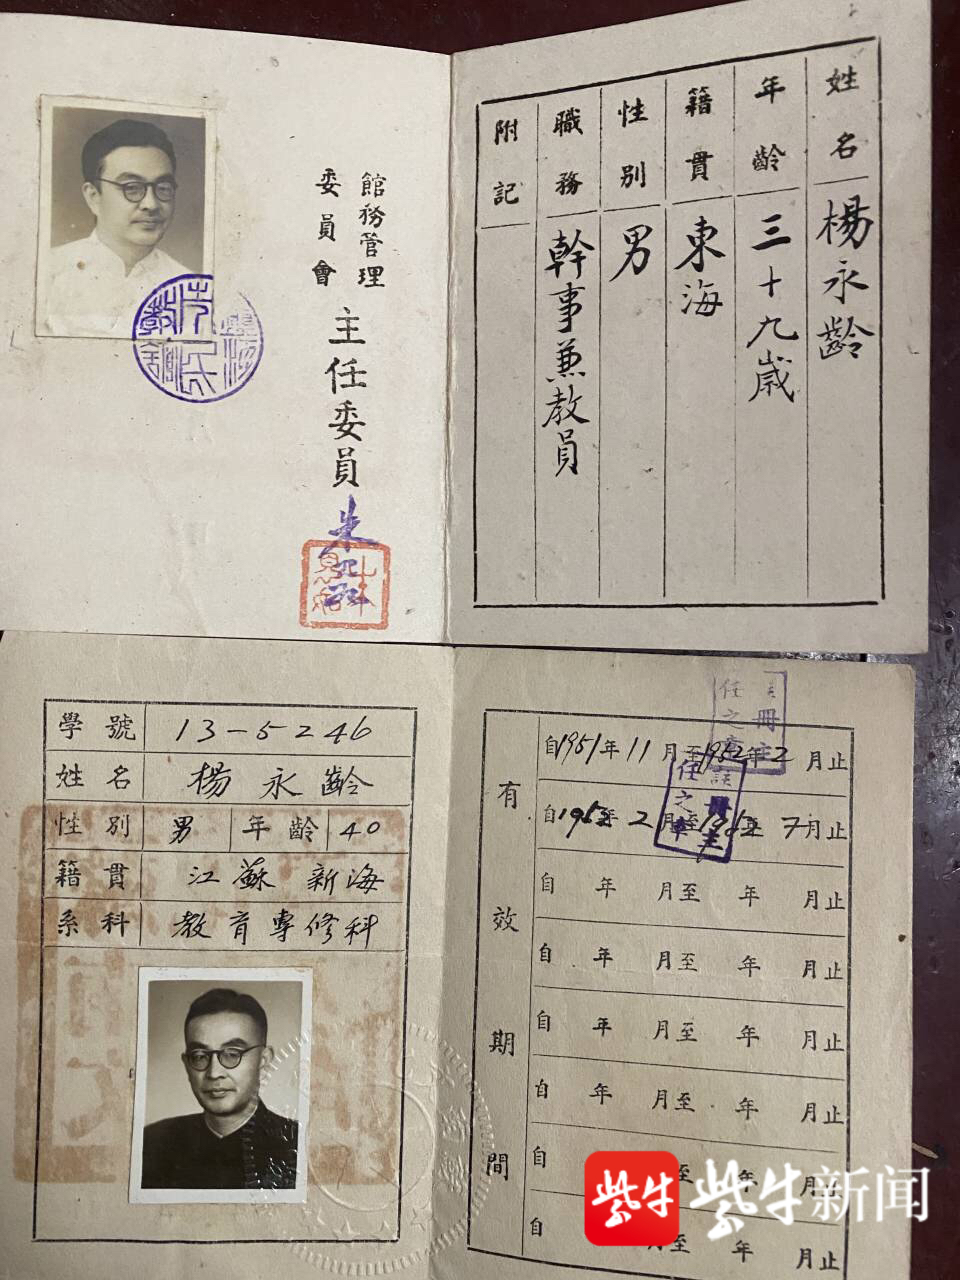 姓名 楊永齡
年齡 三十九歲
籍貫 東海
性別 男
職務 幹事兼教員
附記
館務管理
委員會
主任委員
朱
學號 13-5246
姓名 楊永齡
性別 男 年齡 40
籍貫 江蘇新海
系科 教育專修科
有效期間
自1951年11月至1952年2月止
自1952年2月至1952年7月止
自 年 月至 年 月止
自 年 月至 年 月止
自 年 月至 年 月止
自 年 月至 年 月止
自 年 月至 年 月止
自 年 月至 年 月止
註冊主
任之章
註冊主
任之章
紫牛
紫牛新闻